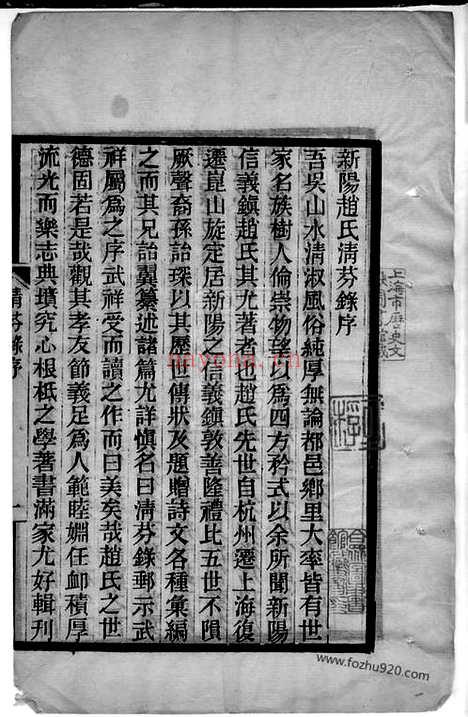 新陽趙氏清芬錄序
吾吳山水清淑風俗純厚無論都邑鄉里大率皆有世
家名族樹人倫崇物望以為四方矜式以余所聞新陽
信義鎮趙氏其尤著者也趙氏先世自杭州遷上海復
遷崑山旋定居新陽之信義鎮敦善隆禮比五世不隕
厥聲裔孫詒琛以其歷世傳狀及題贈詩文各種彙編
之而其兄詒翼纂述諸篇尤詳愼名曰淸芬錄郵示武
祥屬為之序武祥受而讀之作而曰美矣哉趙氏之世
德固若是哉觀其孝友節義足為人範睦婣任卹積厚
流光而樂志典墳究心根柢之學著書滿家尤好輯刊
清芬錄序
一
上海市歷史文
nayona.cn
www.fozhu920.com